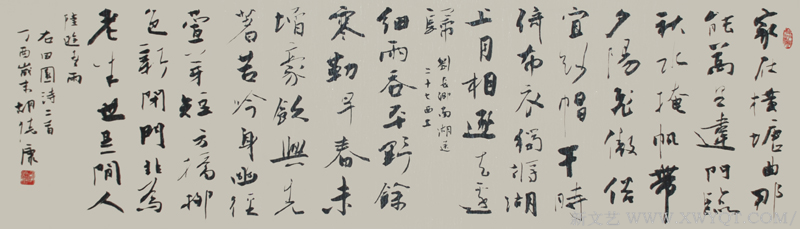 家在横塘曲那
能万里违门临
秋水掩帆带
夕阳飞傲俗
宜纱帽干时
倚布衣独将湖
上月相逐去还
归
刘长卿南湖送
二十七西上
细雨吞平野余
寒勒早春未
增豪饮兴先
著苦吟身幽径
萱芽短方桥柳
色新闭门非为
老半世是闲人
陆游春雨
右田园诗二首
丁酉岁末胡